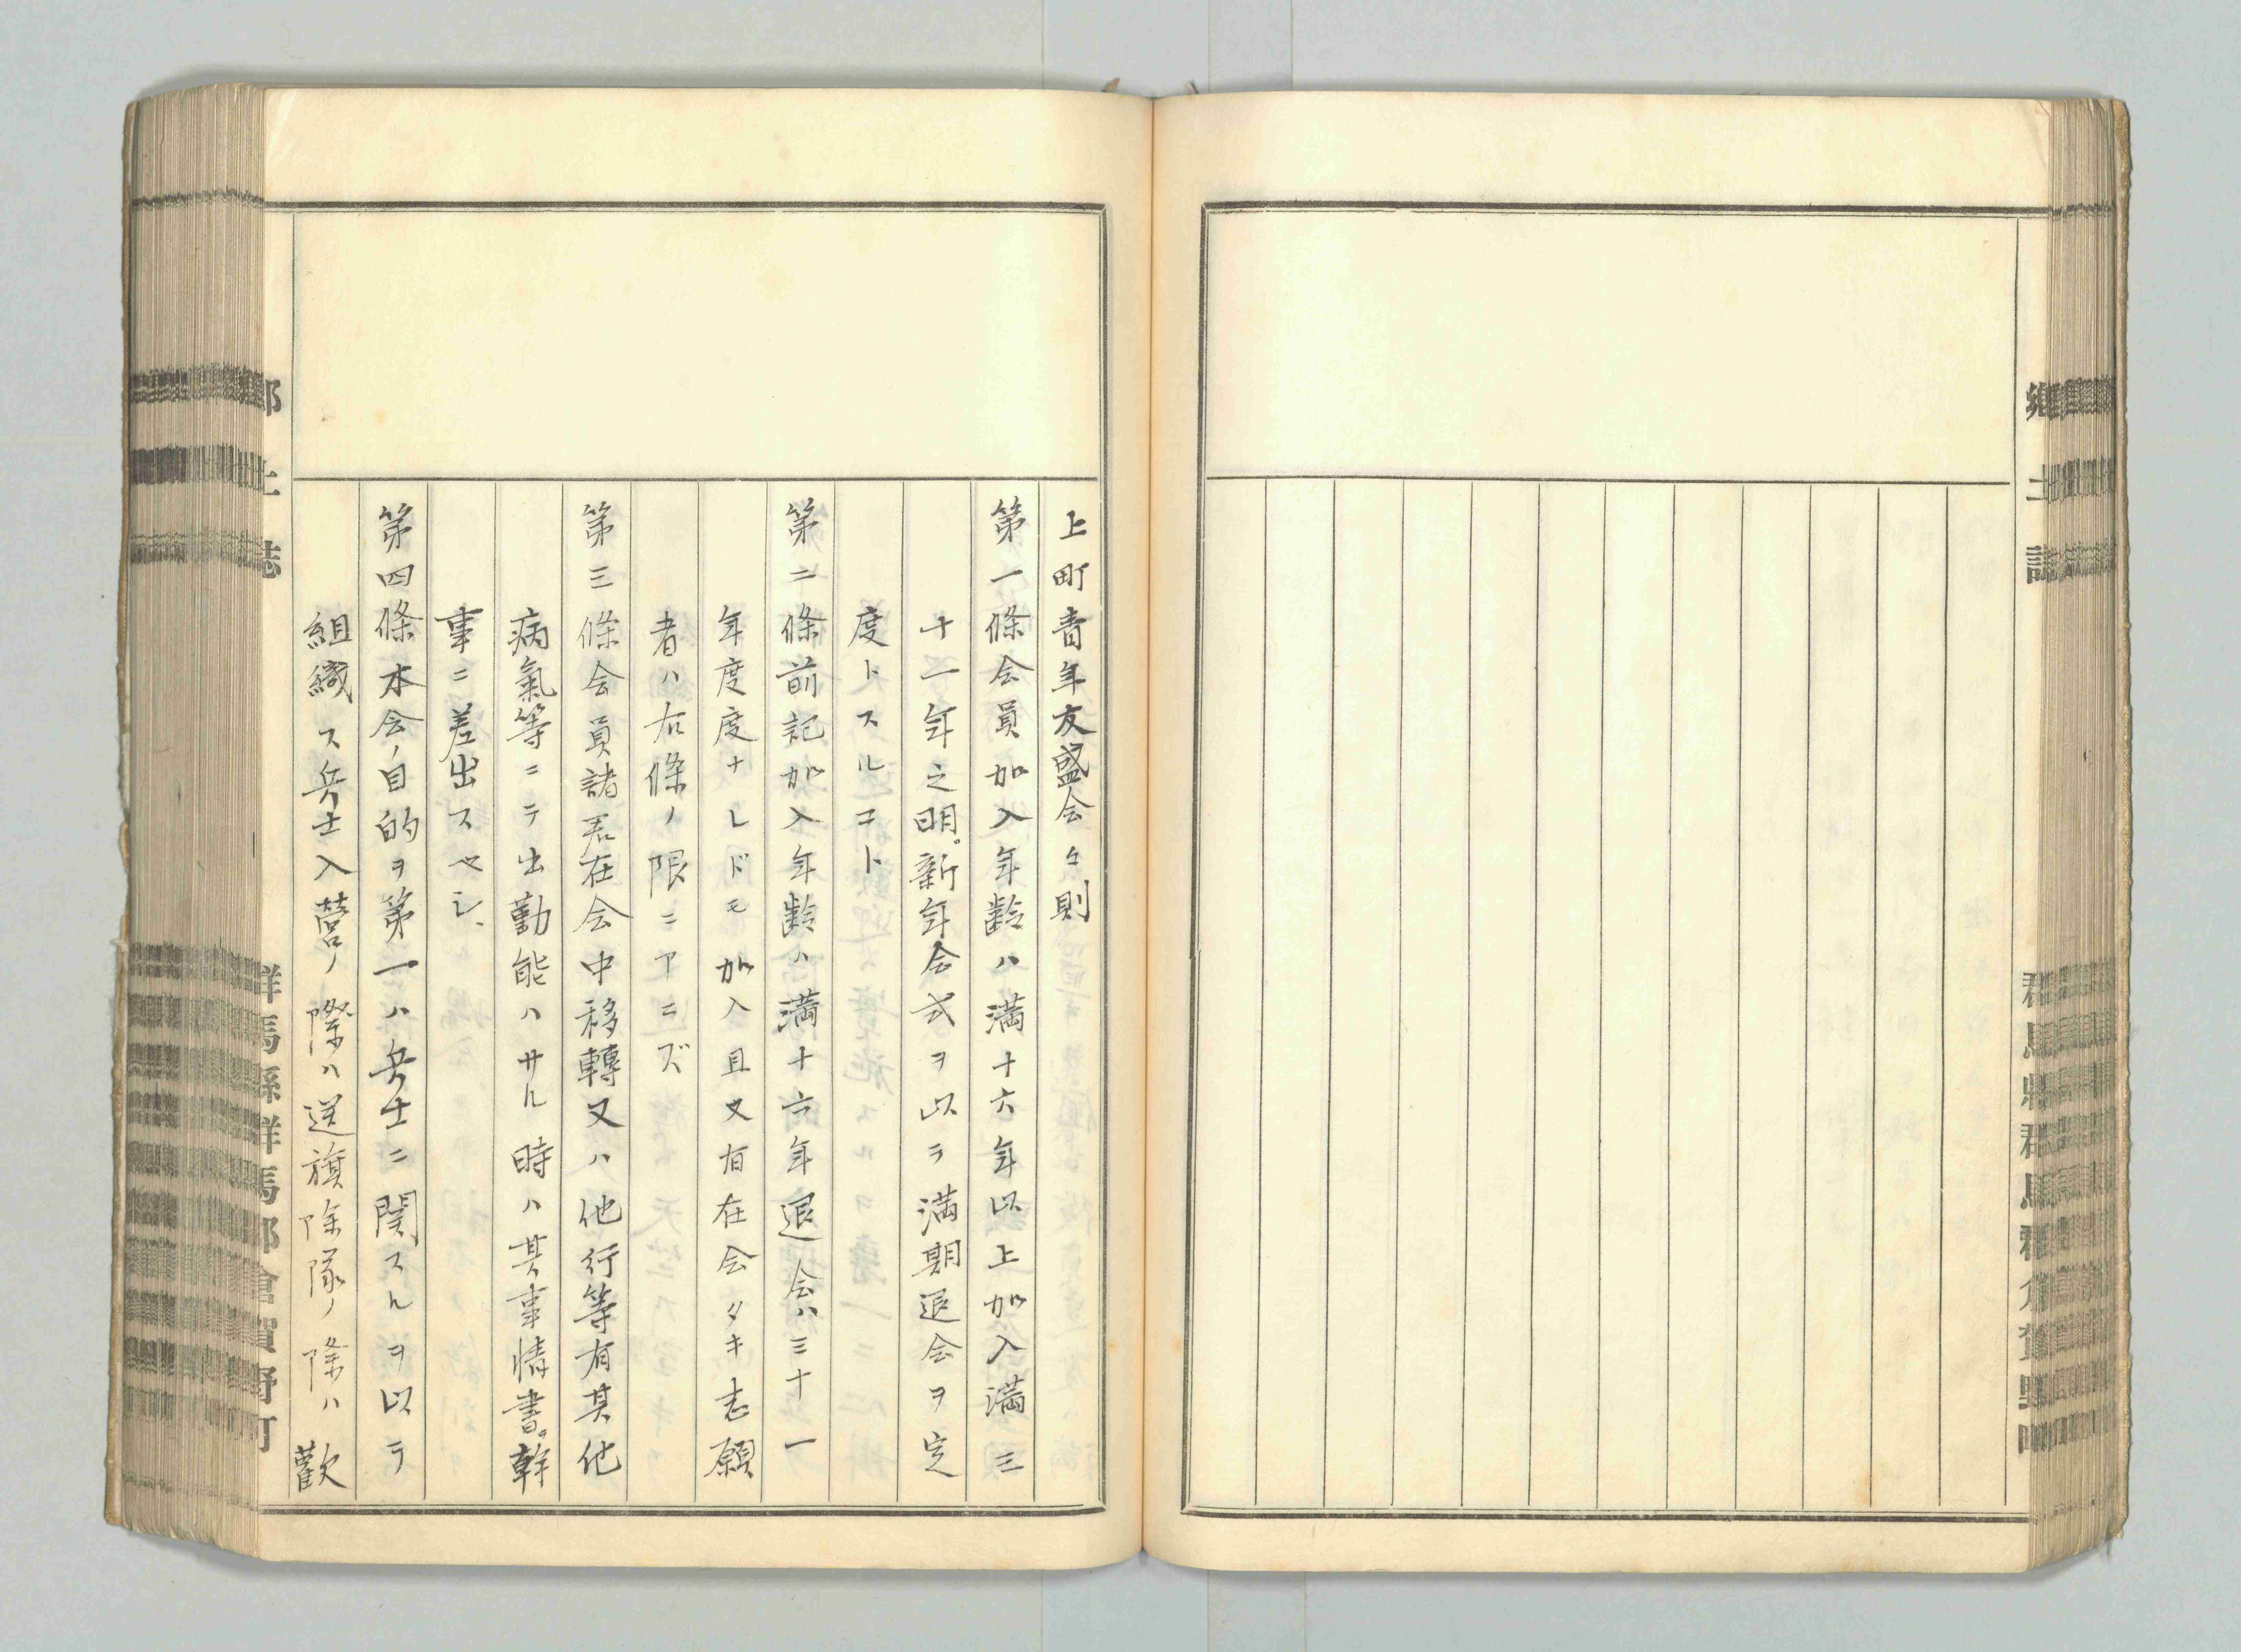 郷土誌
上町青年友盛会々則
第一條会員加入年齢ハ満十六年以上加入満三
十一年之明ヶ新年会式ヲ以テ満期退会ヲ定
度トスルコト
第二條前記加入年齢ハ満十六年退会ハ三十一
年度度ナレドモ加入且又有在会タキ志願
者ハ右條ノ限ニアニズ
第三條会員諸君在会中移轉又ハ他行等有其他
病氣等ニテ出勤能ハサル時ハ其事情書ヲ幹
事ニ差出スベシ、
第四條本会ノ目的ヲ第一ハ兵士ニ関スルヲ以テ
組織ス兵士入営ノ際ハ送旗除隊ノ際ハ歡
郷土誌
群馬縣群馬郡倉賀野町